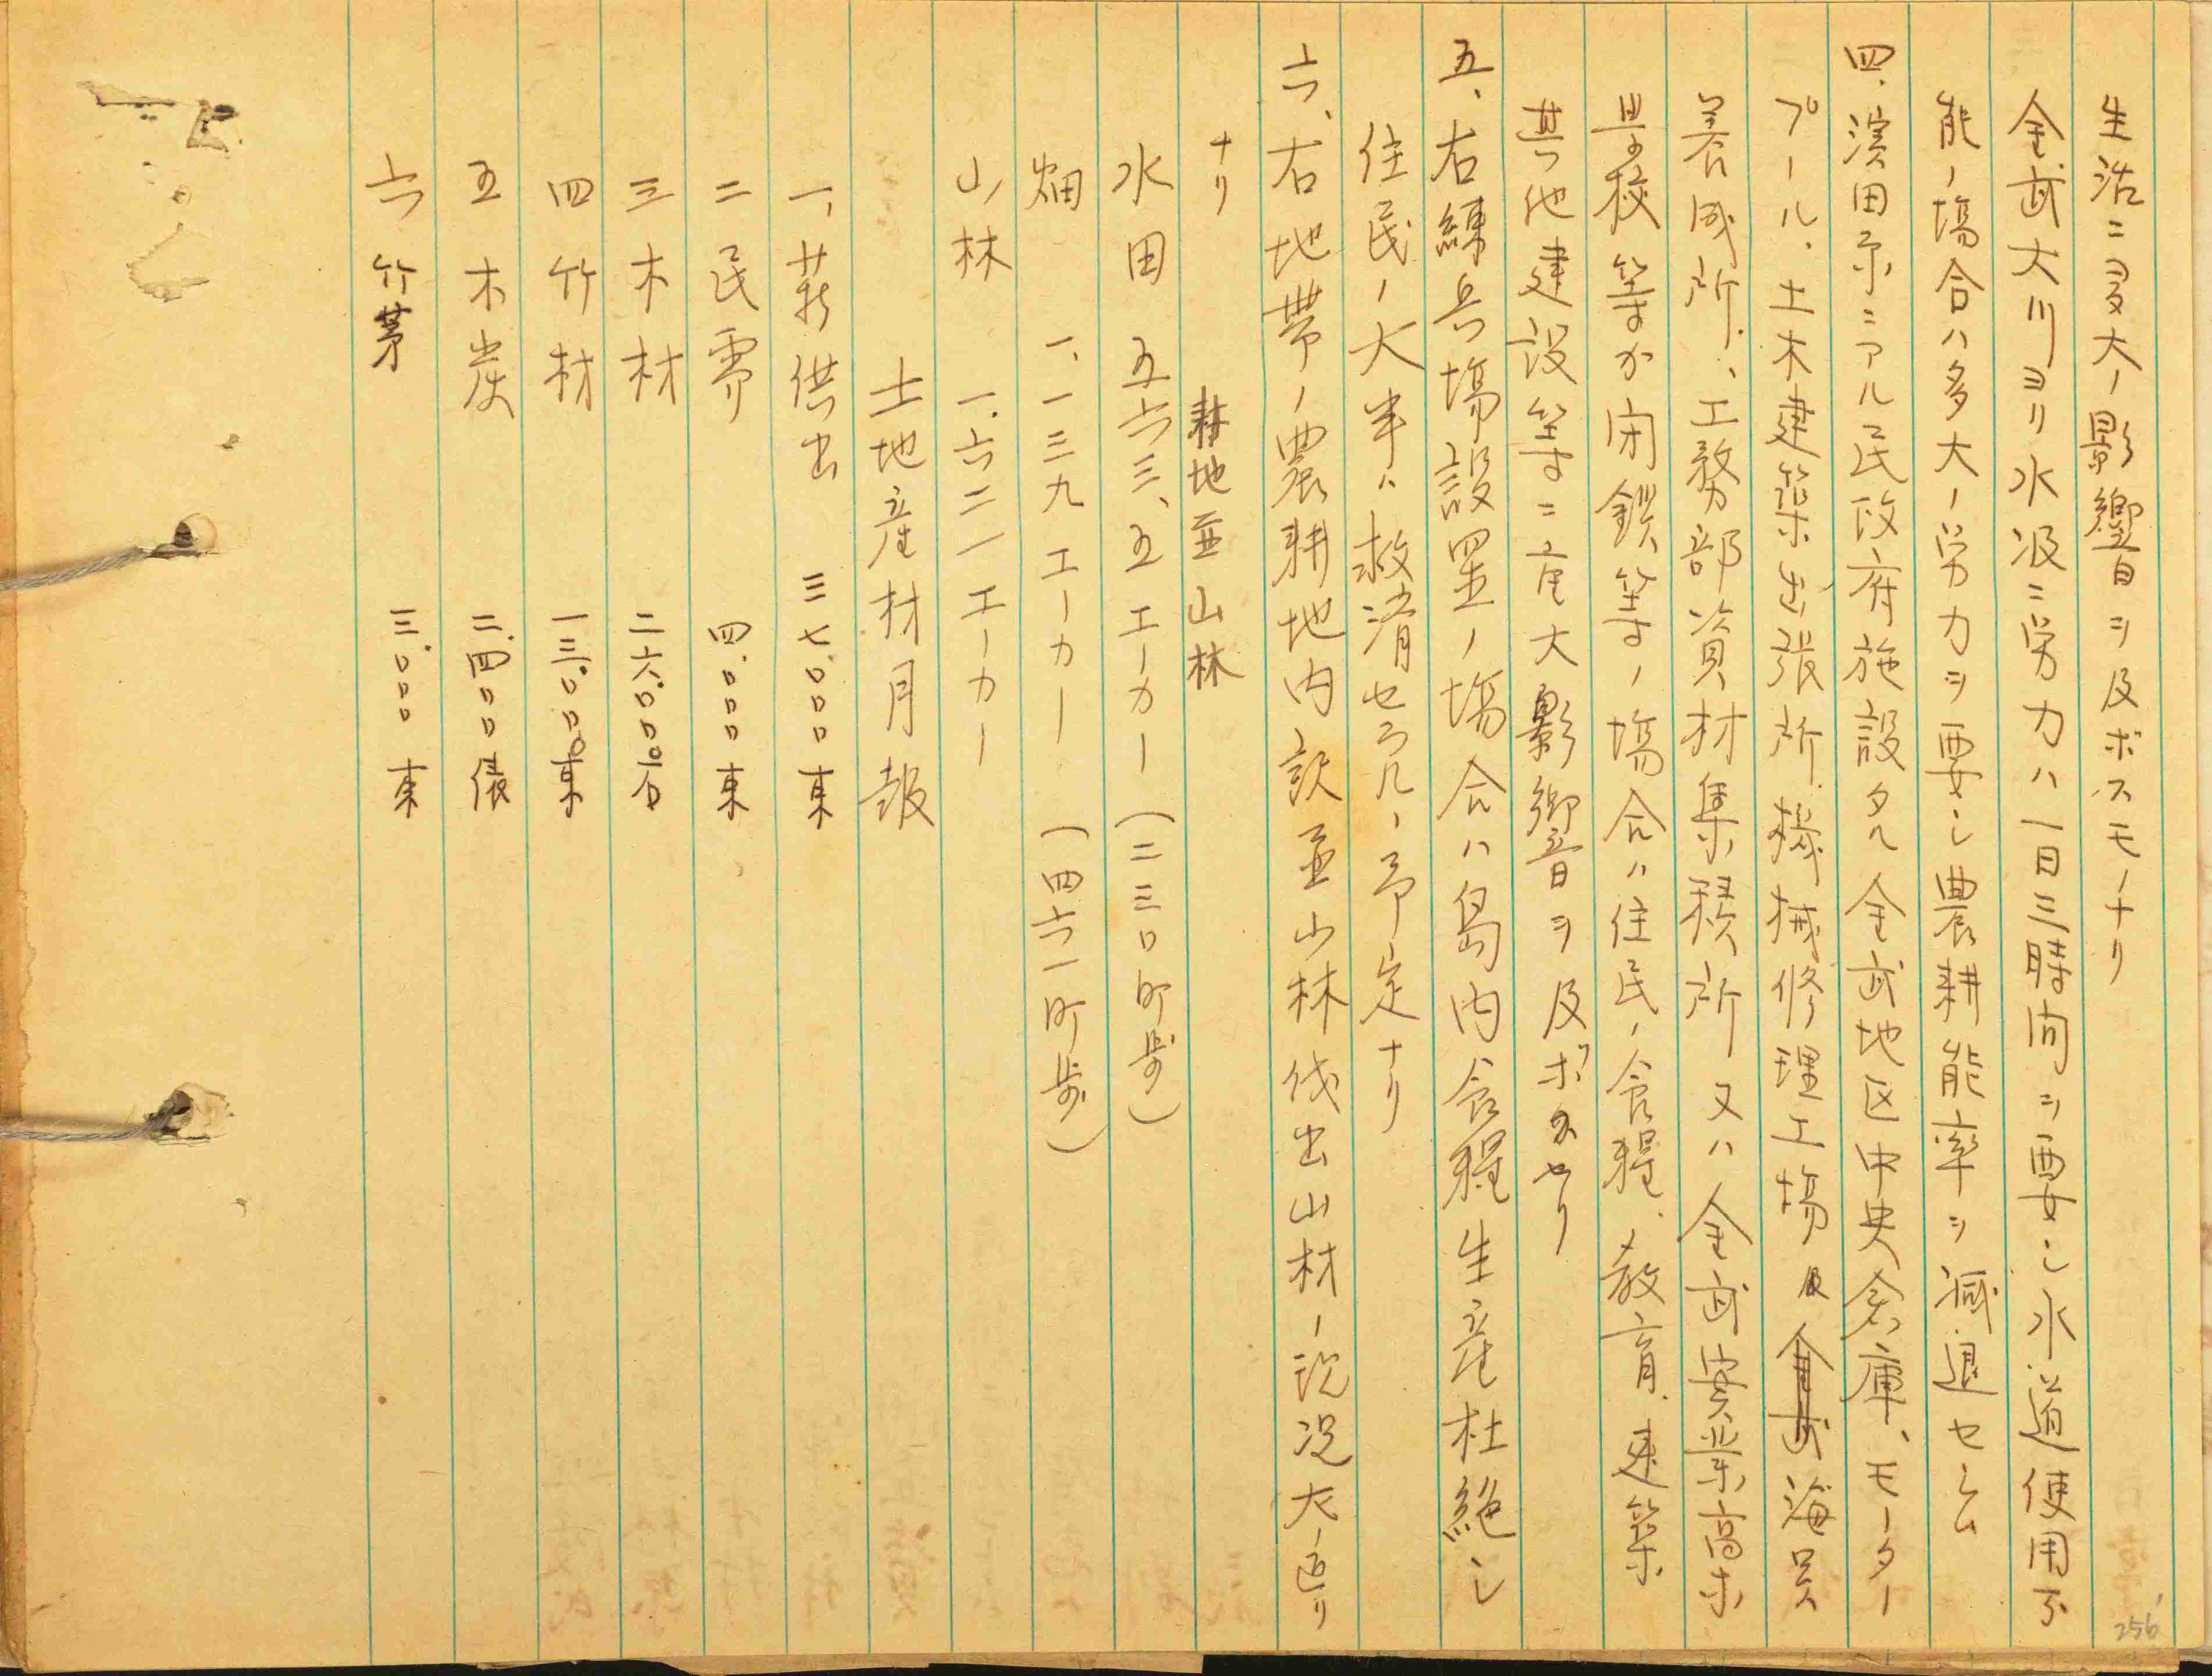 生活ニ多大ノ影響ヲ及ボスモノナリ
金武大川ヨリ水汲ニ労力ハ一日三時間ヲ要シ水道使用不
能ノ場合ハ多大ノ労力ヲ要シ農耕能率ヲ減退セシム
四、濱田原ニアル民政府施設タル金武地区中央倉庫、モーター
プール、土木建築出張所、機械修理工場及金武海員
養成所、工務部資材集積所又ハ金武実業高ホ
学校等が閉鎖等ノ場合ハ住民ノ食糧、教育、建築
其ノ他建設等ニ甚大影響ヲ及ボスセリ
五、右練兵場設置ノ場合ハ島内食糧生産杜絶シ
住民ノ大半ハ救済セラルヽ予定ナリ
六、右地帯ノ農耕地内訳並山林伐出山材ノ況況大ノ返リ
ナリ
耕地並山林
水田 五六三、五エーカー (二三〇町歩)
畑 一、一三九エーカー (四六一町歩)
山林 一、六二一エーカー
土地産材月報
一、薪供出 三七.〇〇〇束
二 民需 四.〇〇〇束
三 木材 二六.〇〇〇石
四 竹材 一三.〇〇〇束
五 木炭 二.四〇〇俵
六 竹茅 三.〇〇〇束
256